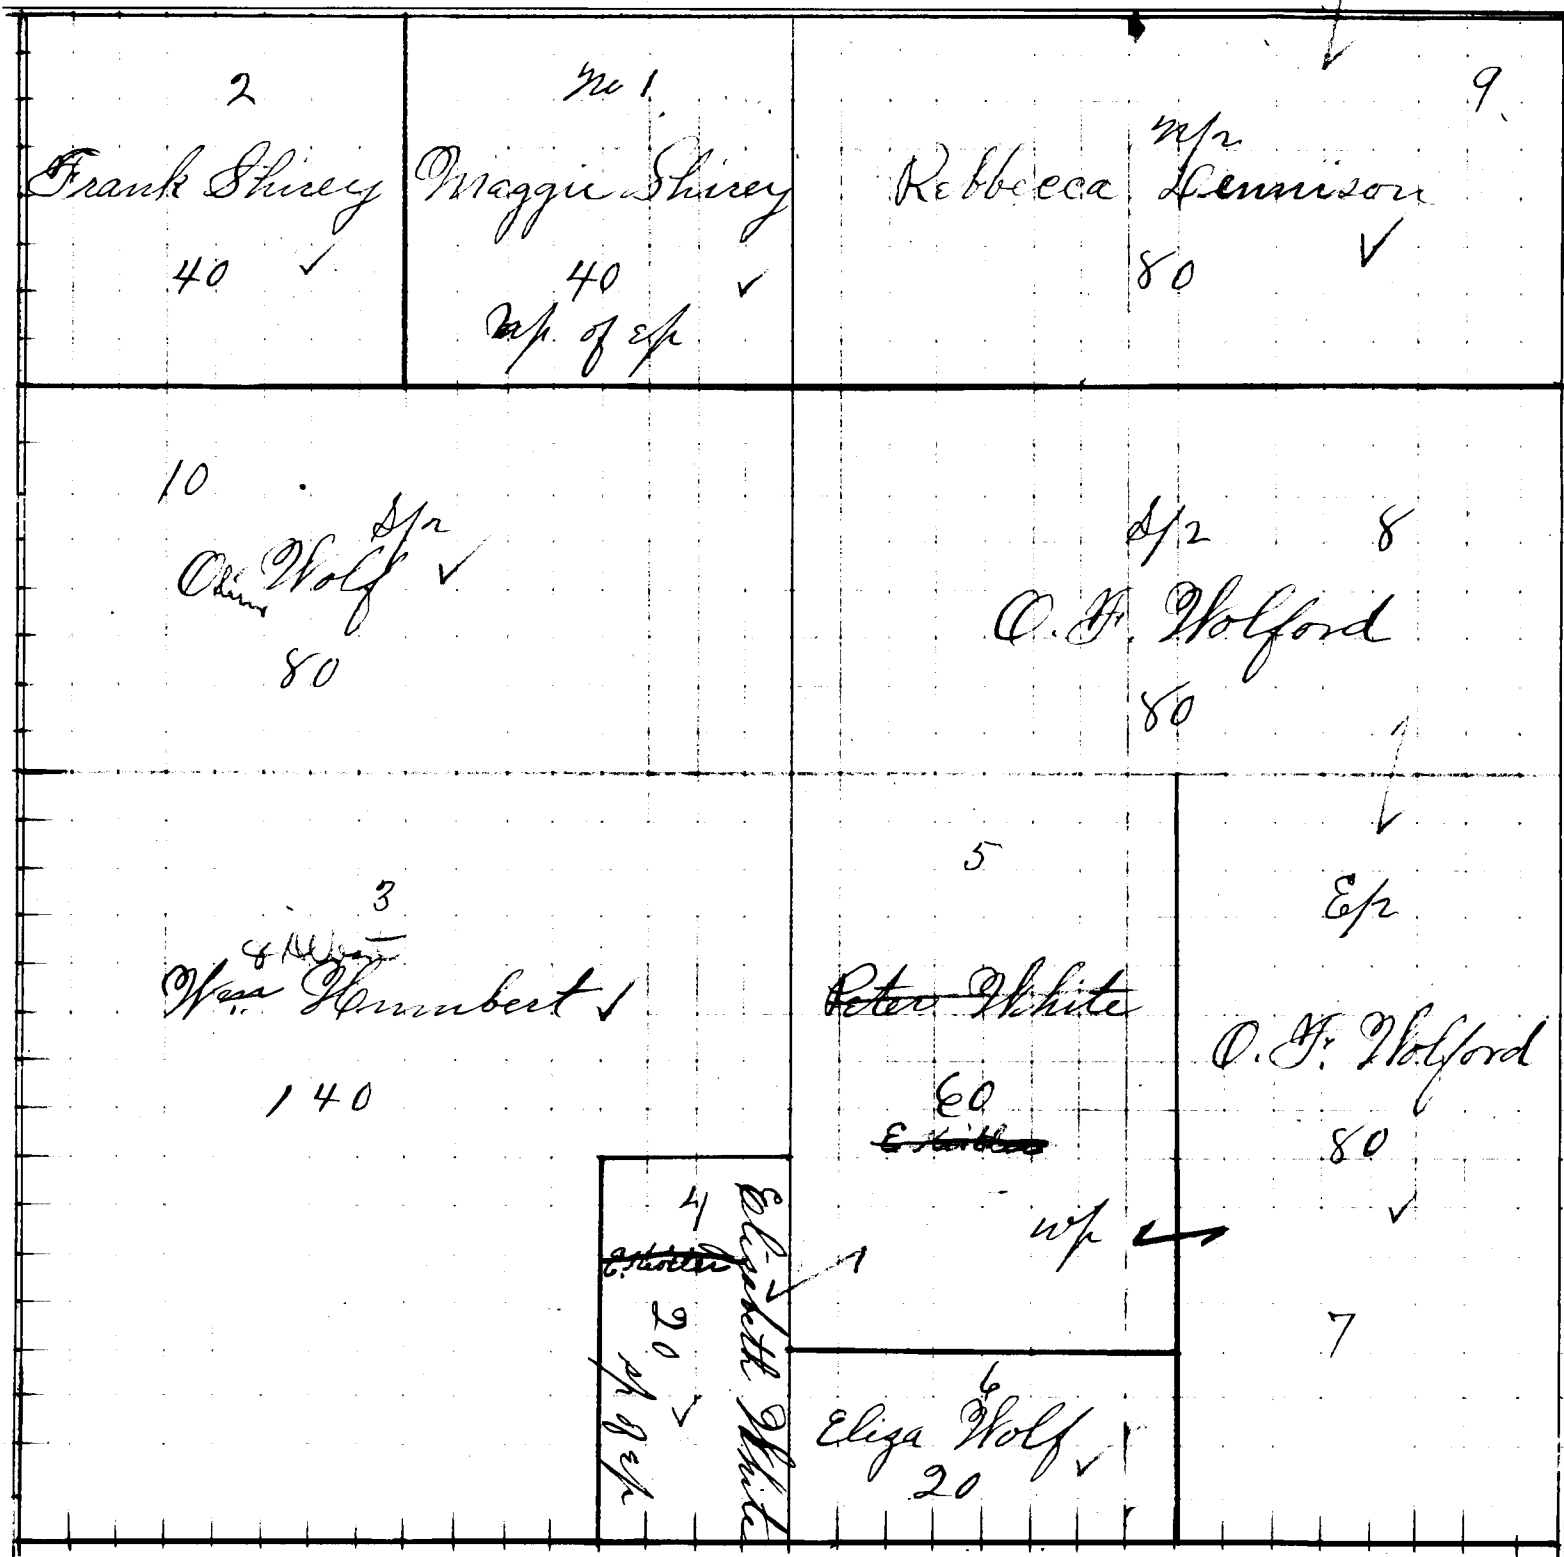 2
Frank Shirey
40 ✓
No 1
Maggie Shirey
40 ✓
np. of ep
9
n/2
Rebbeeca Dennison
80 ✓
10
S/2
Wolf ✓
80
S/2 8
O. F. Wolford
80
3
Wm Humbert ✓
140
5
Peter White
60
wp
Ep
O. F. Wolford
80
✓
7
4
Elizabeth White
20 ✓
sp of ep
6
Eliza Wolf ✓
20